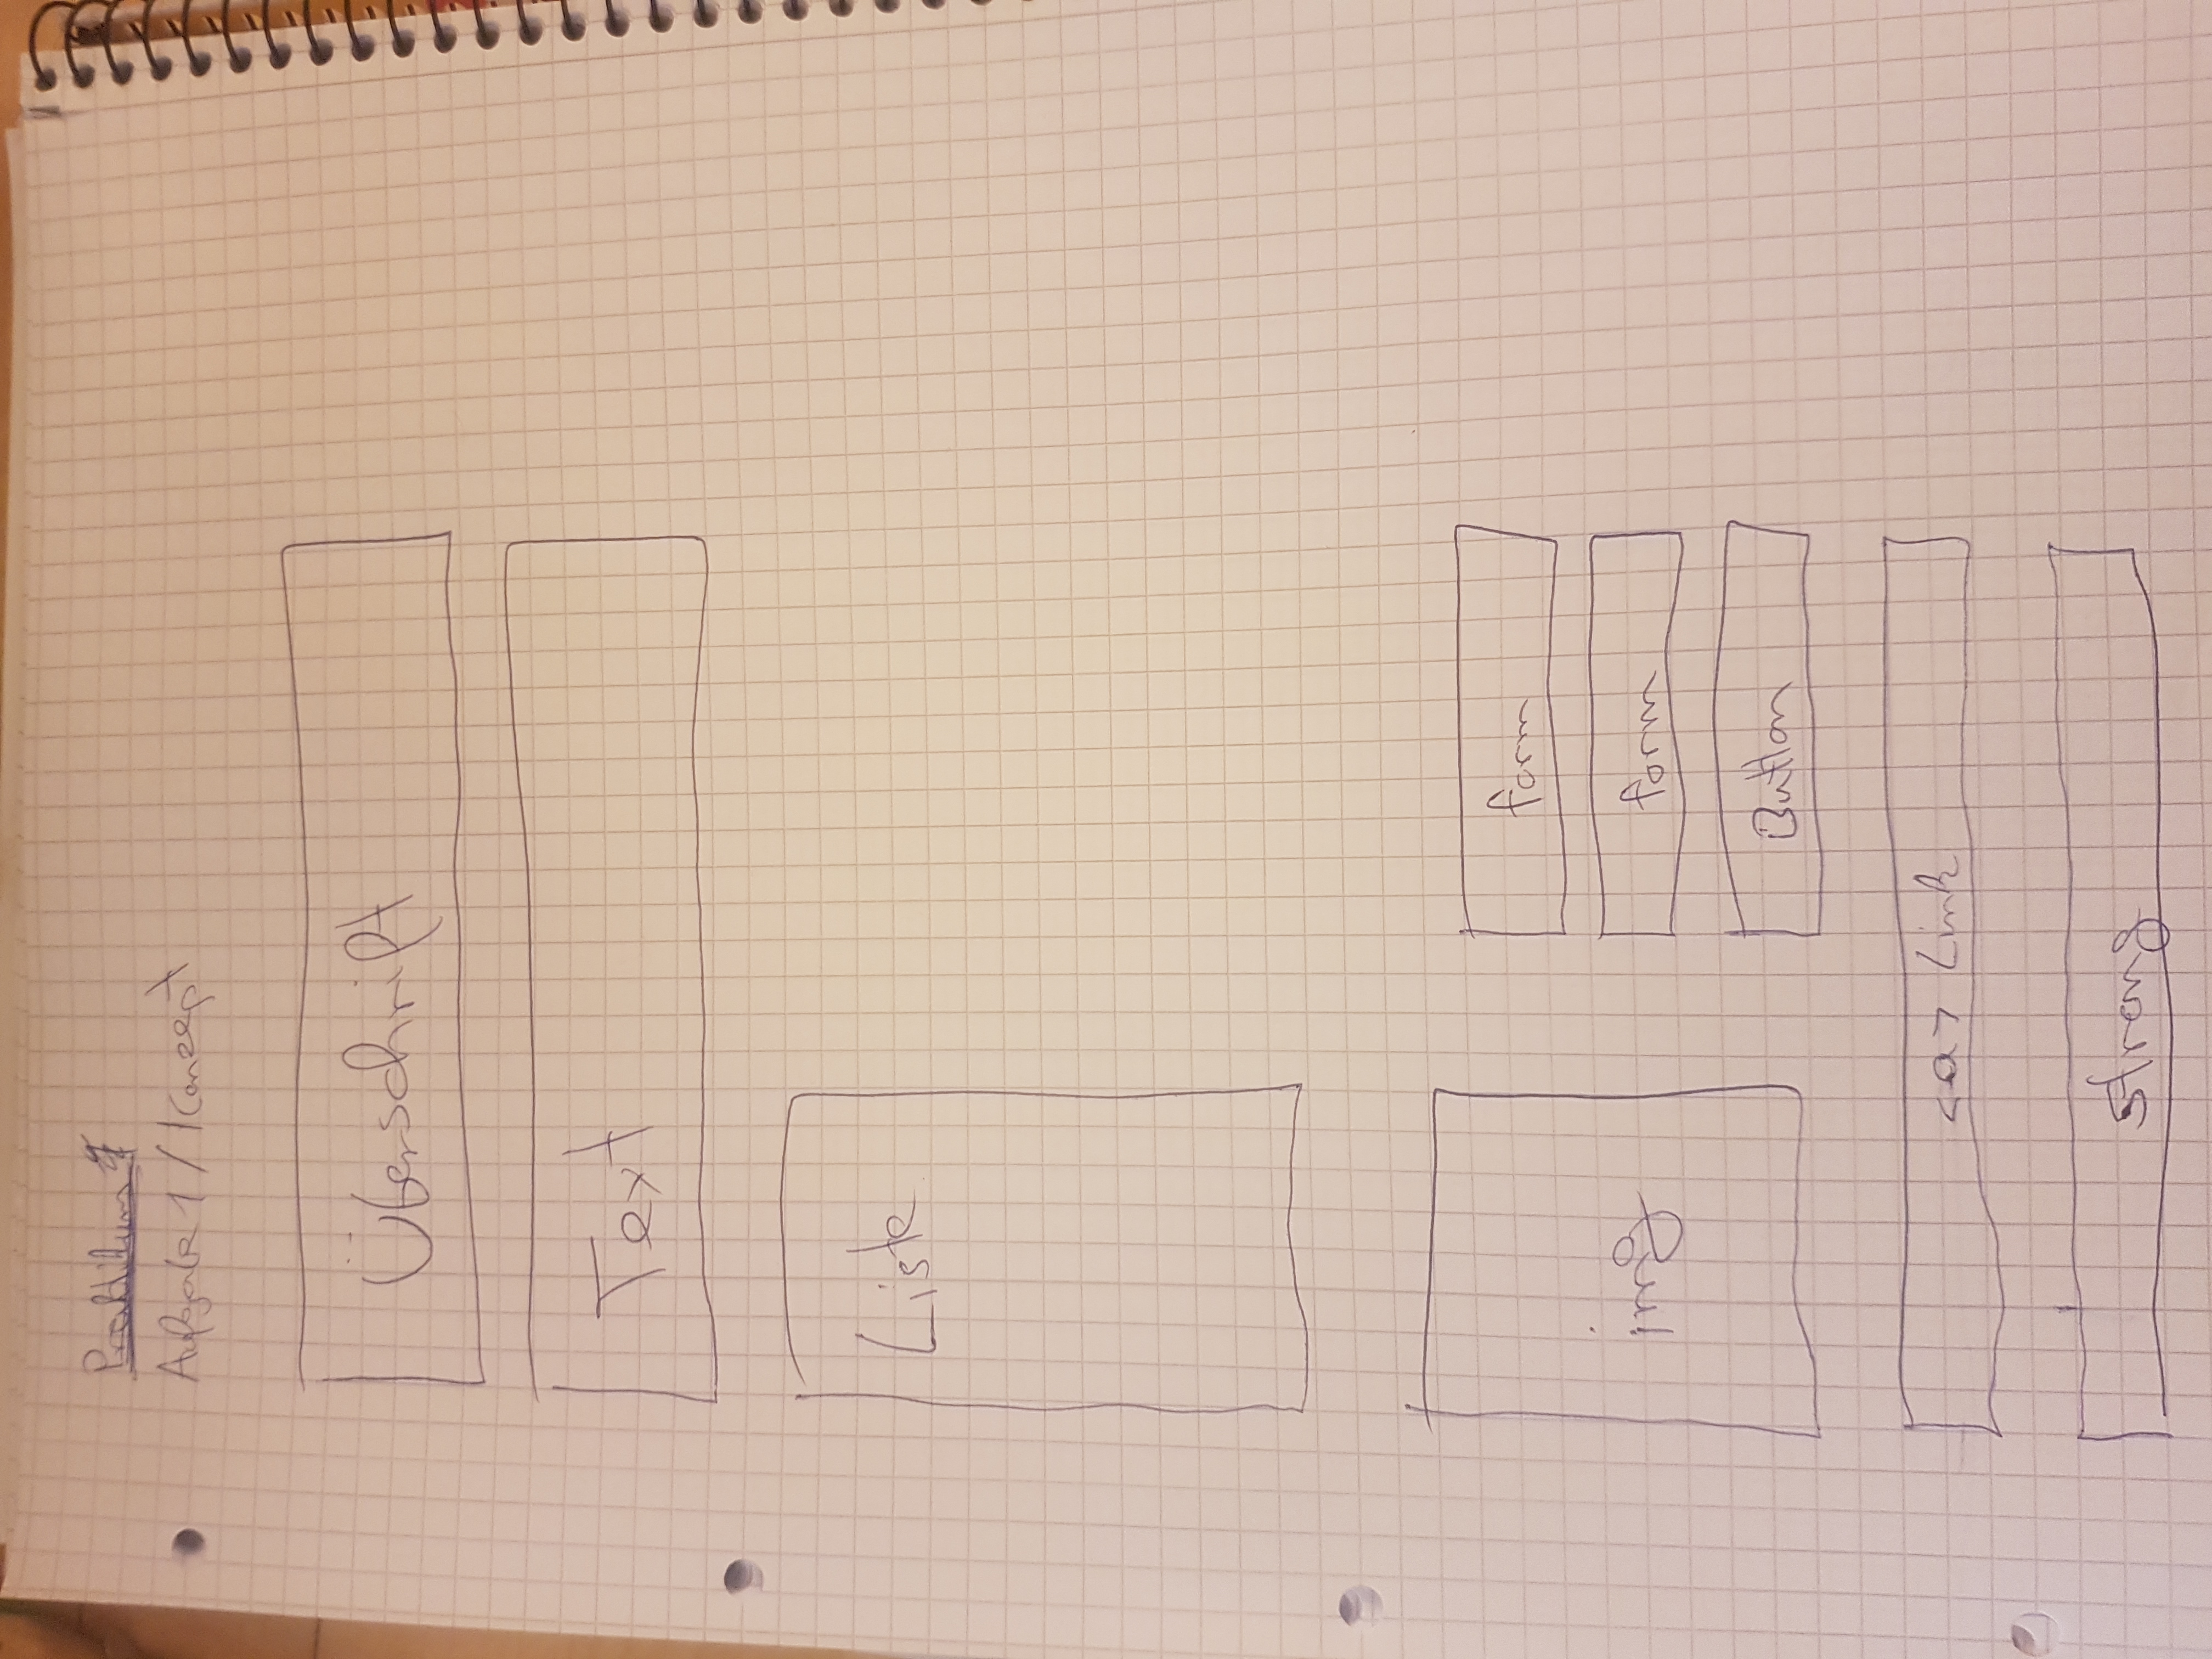 Praktikum 1
Aufgabe 1 / Konzept
Überschrift
Text
Liste
img
form
form
Button
<a> Link
strong